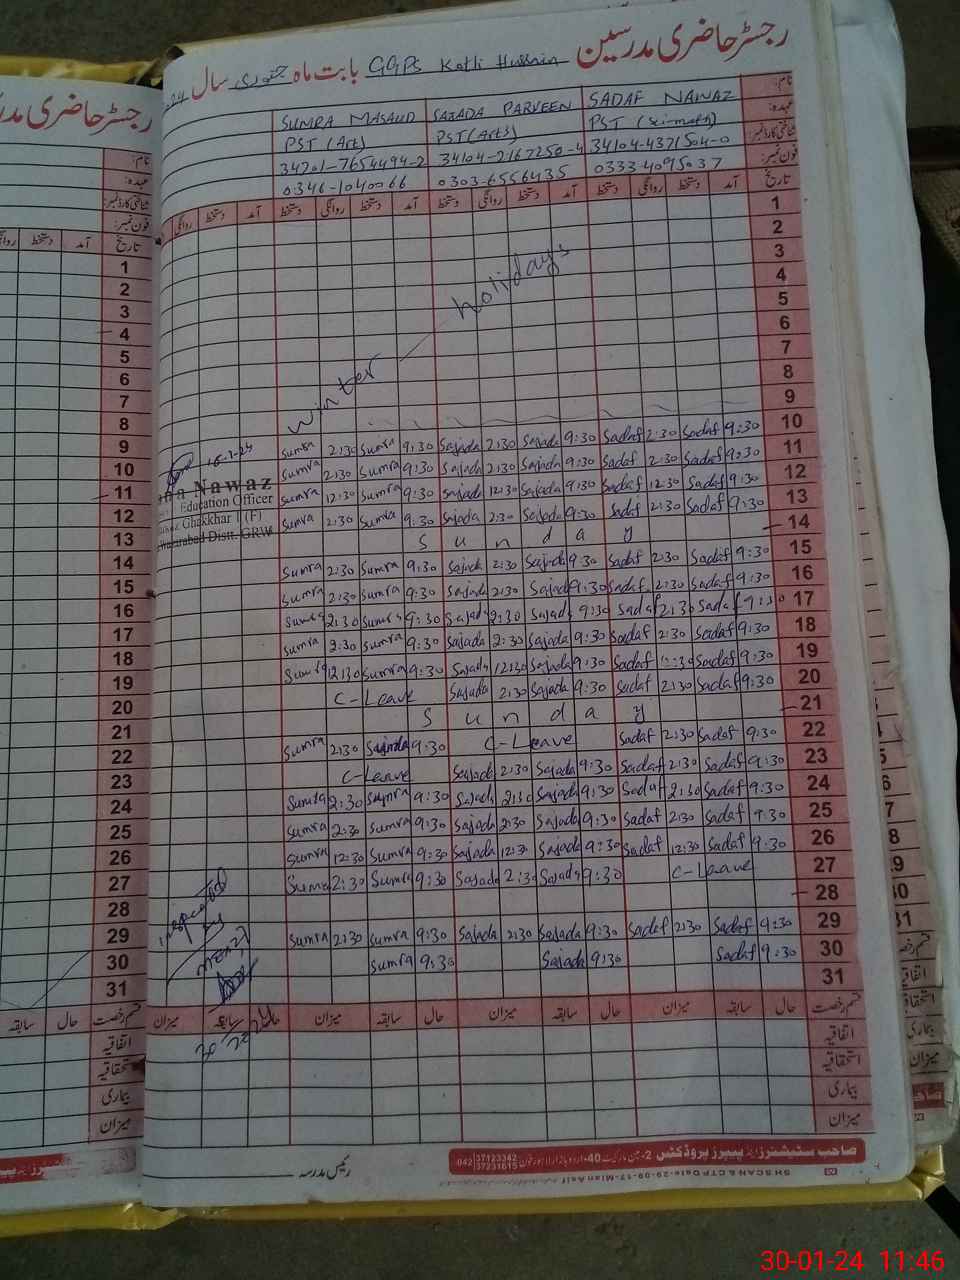 رجسٹر حاضری مدرسین GGPS Kotli Hussain بابت ماہ جنوری سال
نام: SADAF NAWAZ SAJADA PARVEEN SUMRA MASAUD
عہدہ: PST (Sci-math) PST (Arts) PST (Art)
شناختی کارڈ نمبر: 34104-4371504-0 34104-2167250-4 34201-7654494-2
فون نمبر: 0333-4095037 0303-6556435 0346-1040066
تاریخ آمد دستخط روانگی دستخط آمد دستخط روانگی دستخط آمد دستخط روانگی دستخط آمد دستخط روانگی
1
2
3
4
5
6
7
8
9
winter holidays
Sumra 2:30 Sumra 9:30 Sajada 2:30 Sajada 9:30 Sadaf 2:30 Sadaf 9:30 10
Sumra 2:30 Sumra 9:30 Sajada 2:30 Sajada 9:30 Sadaf 2:30 Sadaf 9:30 11
Sumra 12:30 Sumra 9:30 Sajada 12:30 Sajada 9:30 Sadaf 12:30 Sadaf 9:30 12
Sumra 2:30 Sumra 9:30 Sajada 2:30 Sajada 9:30 Sadaf 2:30 Sadaf 9:30 13
Sunday 14
Sumra 2:30 Sumra 9:30 Sajada 2:30 Sajada 9:30 Sadaf 2:30 Sadaf 9:30 15
Sumra 2:30 Sumra 9:30 Sajada 2:30 Sajada 9:30 Sadaf 2:30 Sadaf 9:30 16
Sumra 2:30 Sumra 9:30 Sajada 2:30 Sajada 9:30 Sadaf 2:30 Sadaf 9:30 17
Sumra 2:30 Sumra 9:30 Sajada 2:30 Sajada 9:30 Sadaf 2:30 Sadaf 9:30 18
Sumra 12:30 Sumra 9:30 Sajada 12:30 Sajada 9:30 Sadaf 12:30 Sadaf 9:30 19
C-Leave Sajada 2:30 Sajada 9:30 Sadaf 2:30 Sadaf 9:30 20
Sunday 21
Sumra 2:30 9:30 C-Leave Sadaf 2:30 Sadaf 9:30 22
C-Leave Sajada 2:30 Sajada 9:30 Sadaf 2:30 Sadaf 9:30 23
Sumra 2:30 Sumra 9:30 Sajada 2:30 Sajada 9:30 Sadaf 2:30 Sadaf 9:30 24
Sumra 2:30 Sumra 9:30 Sajada 2:30 Sajada 9:30 Sadaf 2:30 Sadaf 9:30 25
Sumra 12:30 Sumra 9:30 Sajada 12:30 Sajada 9:30 Sadaf 12:30 Sadaf 9:30 26
Sumra 2:30 Sumra 9:30 Sajada 2:30 Sajada 9:30 C-Leave 27
28
Sumra 2:30 Sumra 9:30 Sajada 2:30 Sajada 9:30 Sadaf 2:30 Sadaf 9:30 29
Sumra 9:30 Sajada 9:30 Sadaf 9:30 30
31
16-1-24
Nawaz
Education Officer
Ghakkhar I (F)
Distt. GRW
inspected
by
قسم رخصت حال سابقہ میزان حال سابقہ میزان حال سابقہ میزان حال سابقہ میزان
اتفاقیہ
استحقاقیہ
بیماری
میزان
صاحب سٹیشنرز اینڈ پیپرز پروڈکٹس 2-مین مارکیٹ 40-اردو بازار لاہور فون 042 37123342 37231615
رئیس مدرسہ
رجسٹر حاضری
نام:
عہدہ:
شناختی کارڈ نمبر:
فون نمبر:
تاریخ آمد دستخط
1
2
3
4
5
6
7
8
9
10
11
12
13
14
15
16
17
18
19
20
21
22
23
24
25
26
27
28
29
30
31
قسم رخصت حال سابقہ
اتفاقیہ
استحقاقیہ
بیماری
میزان
30-01-24 11:46